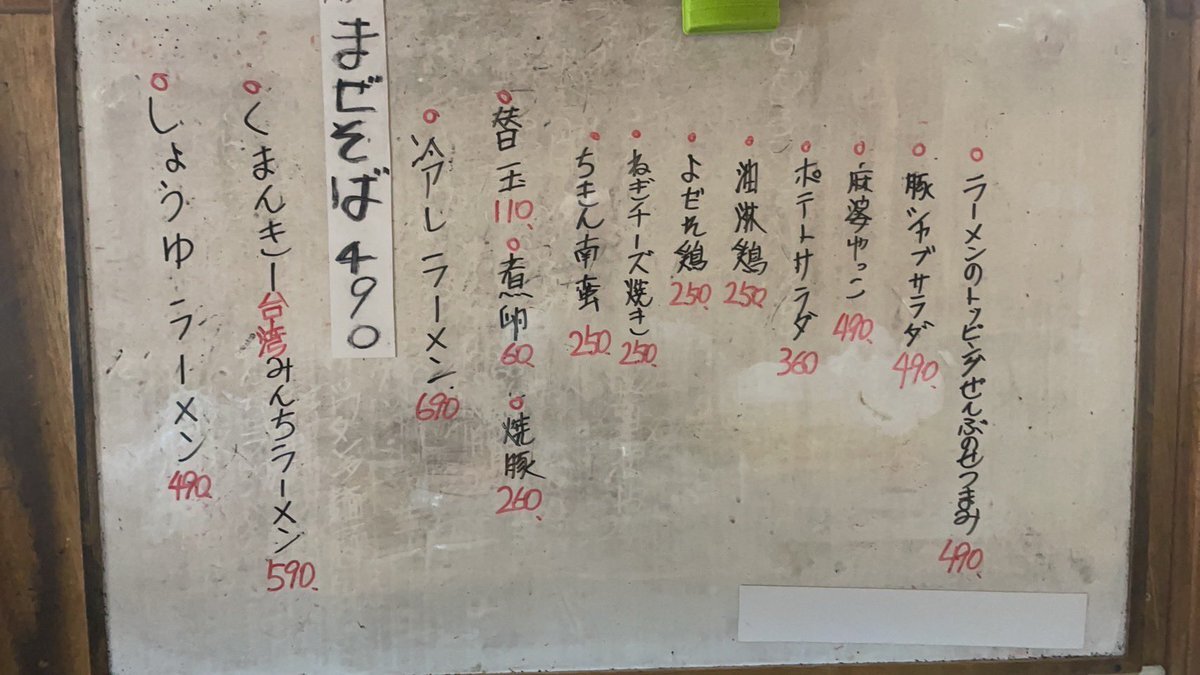 ラーメンのトッピングぜんぶのせつまみ 490.
豚シャブサラダ 490.
麻婆やっこ 490.
ポテトサラダ 360
油淋鶏 250.
よだれ鶏 250.
ねぎチーズ焼き 250.
ちきん南蛮 250.
替玉 110.
煮卵 60.
焼豚 260.
冷しラーメン 690.
まぜそば 490
くまんきー台湾みんちラーメン 590.
しょうゆラーメン 490.